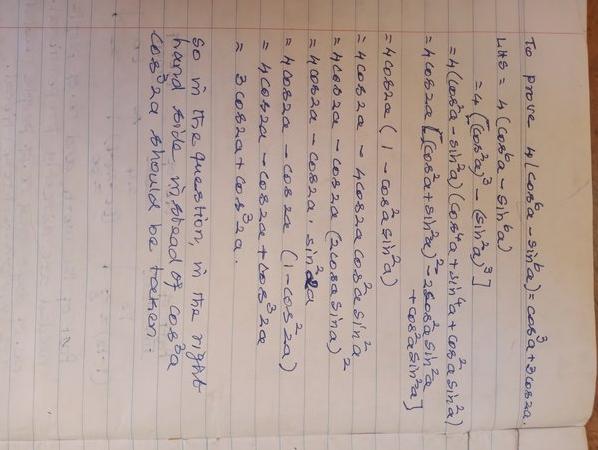 To prove 4(cos⁶a - sin⁶a) = cos³a + 3cos2a.
LHS = 4(cos⁶a - sin⁶a)
= 4[(cos²a)³ - (sin²a)³]
= 4(cos²a - sin²a)(cos⁴a + sin⁴a + cos²a sin²a)
= 4cos2a[(cos²a + sin²a)² - 2cos²a sin²a
+ cos²a sin²a]
= 4cos2a(1 - cos²a sin²a)
= 4cos2a - 4cos2a cos²a sin²a
= 4cos2a - cos2a(2cosa sina)²
= 4cos2a - cos2a . sin²2a
= 4cos2a - cos2a (1 - cos²2a)
= 4cos2a - cos2a + cos³2a
= 3cos2a + cos³2a.
so in the question, in the right
hand side, instead of cos³a
cos³2a should be taken.